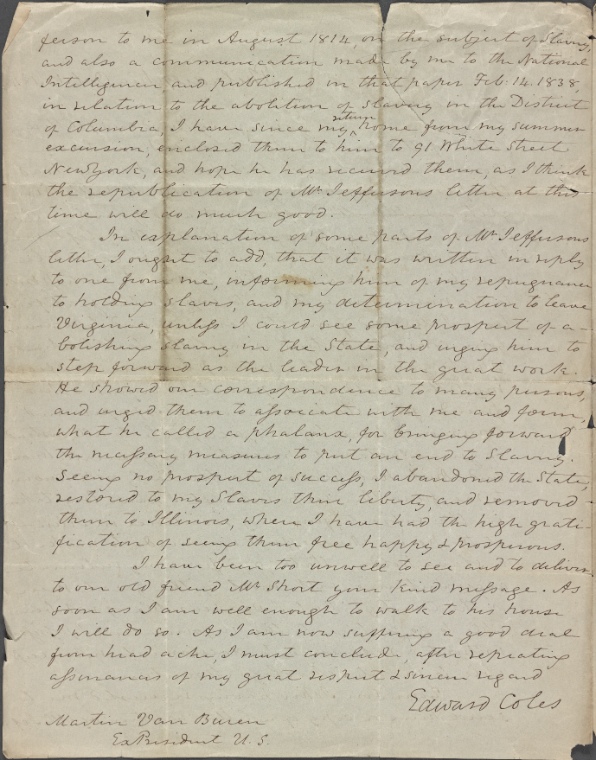 ferson to me in August 1814, on the subject of Slavery,
and also a communication made by me to the National
Intelligencer and published in that paper Feb: 14. 1838,
in relation to the abolition of Slavery in the District
of Columbia, I have since my return home from my summer
excursion, enclosed them to him to 91 White Street
New York, and hope he has received them, as I think
the republication of Mr. Jeffersons letter at this
time will do much good.
In explanation of some parts of Mr. Jeffersons
letter, I ought to add, that it was written in reply
to one from me, informing him of my repugnance
to holding slaves, and my determination to leave
Virginia, unless I could see some prospect of a-
bolishing slavery in the State, and urging him to
step forward as the leader in the great work.
He showed our correspondence to many persons,
and urged them to associate with me and form,
what he called a phalanx, for bringing forward
the necessary measures to put an end to Slavery.
Seeing no prospect of success, I abandoned the State,
restored to my Slaves their liberty, and removed
them to Illinois, where I have had the high grati-
fication of seeing them free happy & prosperous.
I have been too unwell to see and to deliver
to our old friend Mr. Short your kind message. As
soon as I am well enough to walk to his house
I will do so. As I am now suffering a good deal
from head ache, I must conclude, after repeating
assurances of my great respect & sincere regard
Edward Coles
Martin Van Buren
Ex President U. S.